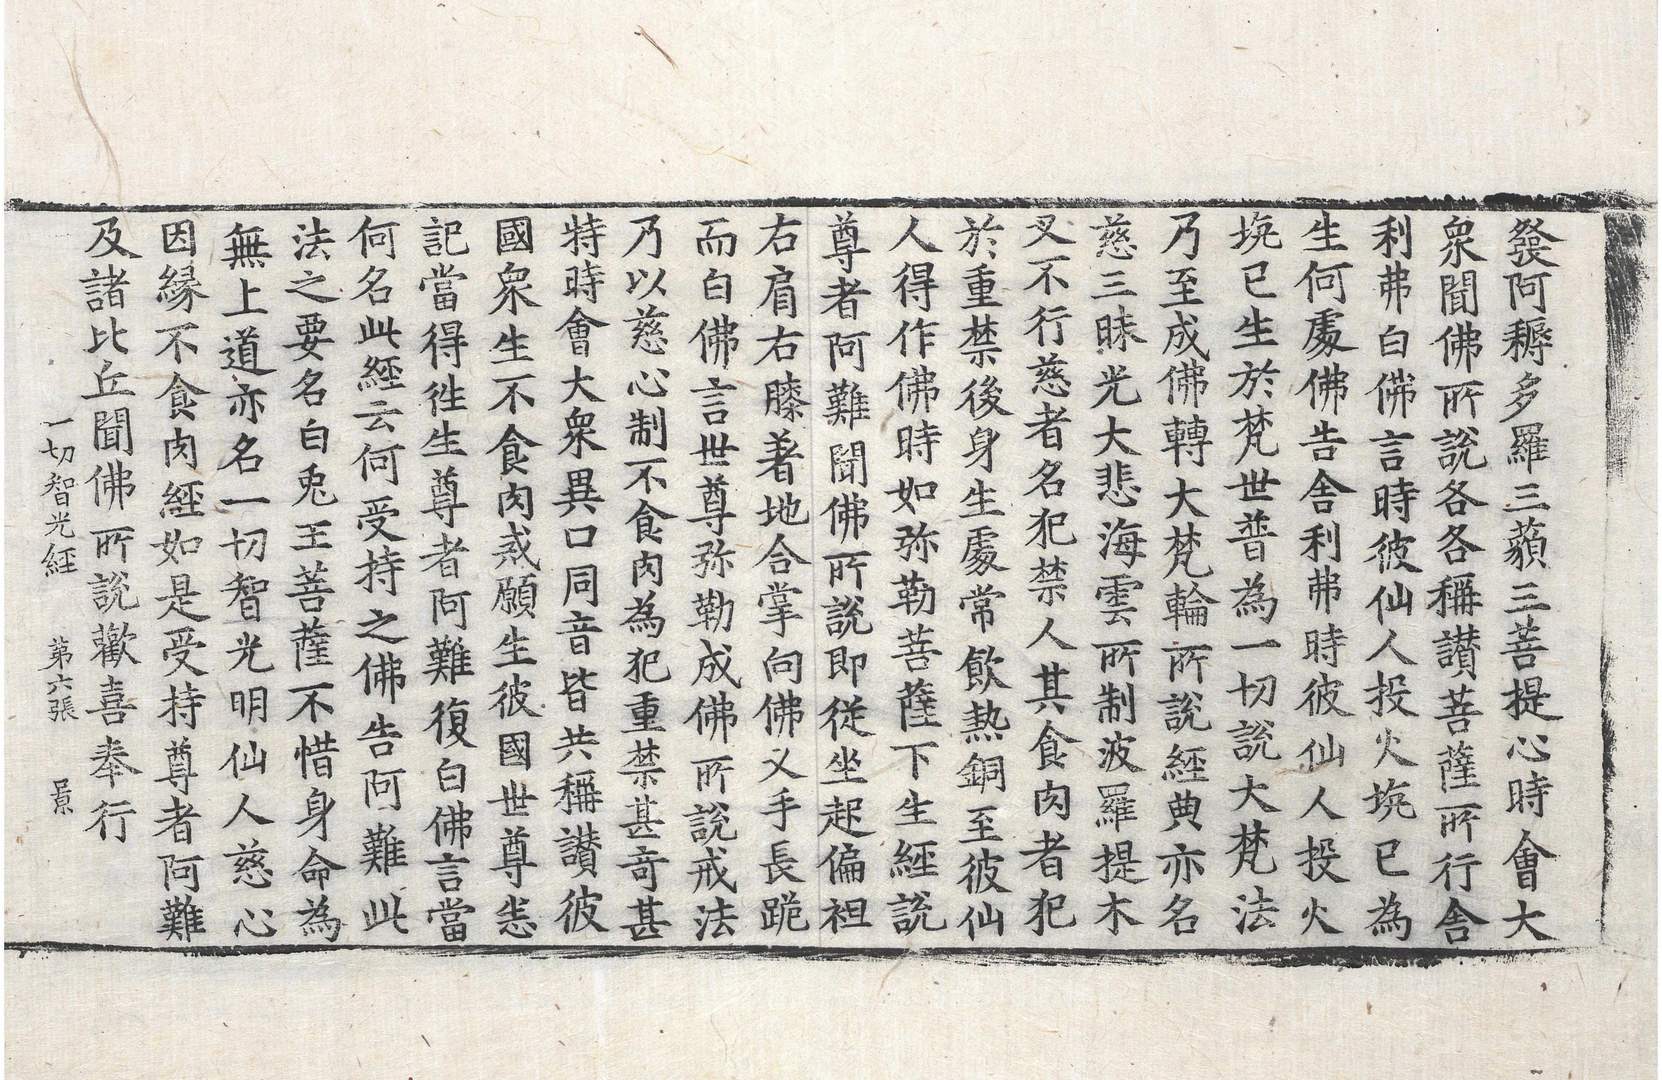 發阿耨多羅三藐三菩提心時會大
衆聞佛所說各各稱讃菩薩所行舍
利弗白佛言時彼仙人投火坑已爲
生何處佛告舍利弗時彼仙人投火
坑已生於梵世普爲一切說大梵法
乃至成佛轉大梵輪所說經典亦名
慈三昧光大悲海雲所制波羅提木
叉不行慈者名犯禁人其食肉者犯
於重禁後身生處常飮熱銅至彼仙
人得作佛時如弥勒菩薩下生經說
尊者阿難聞佛所說即從坐起偏袒
右肩右膝著地合掌向佛叉手長跪
而白佛言世尊弥勒成佛所說戒法
乃以慈心制不食肉爲犯重禁甚竒甚
特時會大衆異口同音皆共稱讃彼
國衆生不食肉戒願生彼國世尊悉
記當得徃生尊者阿難復白佛言當
何名此經云何受持之佛告阿難此
法之要名白兎王菩薩不惜身命爲
無上道亦名一切智光明仙人慈心
因縁不食肉經如是受持尊者阿難
及諸比丘聞佛所說歡喜奉行
一切智光經 第六張 景